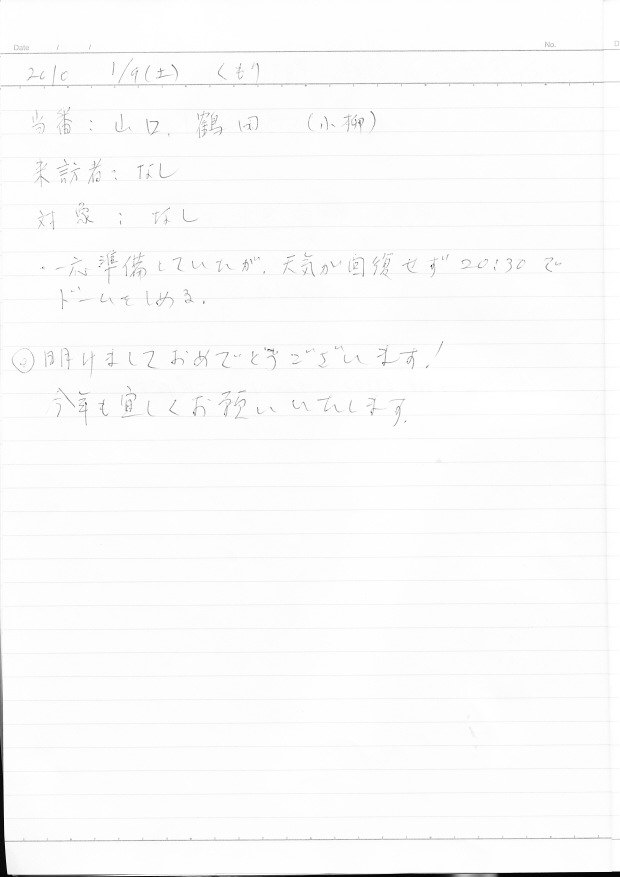 Date / /
No.
2010 1/9(土) くもり
当番: 山口, 鶴田 (小柳)
来訪者: なし
対象: なし
・一応準備していたが、天気が回復せず20:30で
ドームをしめる。
明けましておめでとうございます!
今年も宜しくお願いいたします。